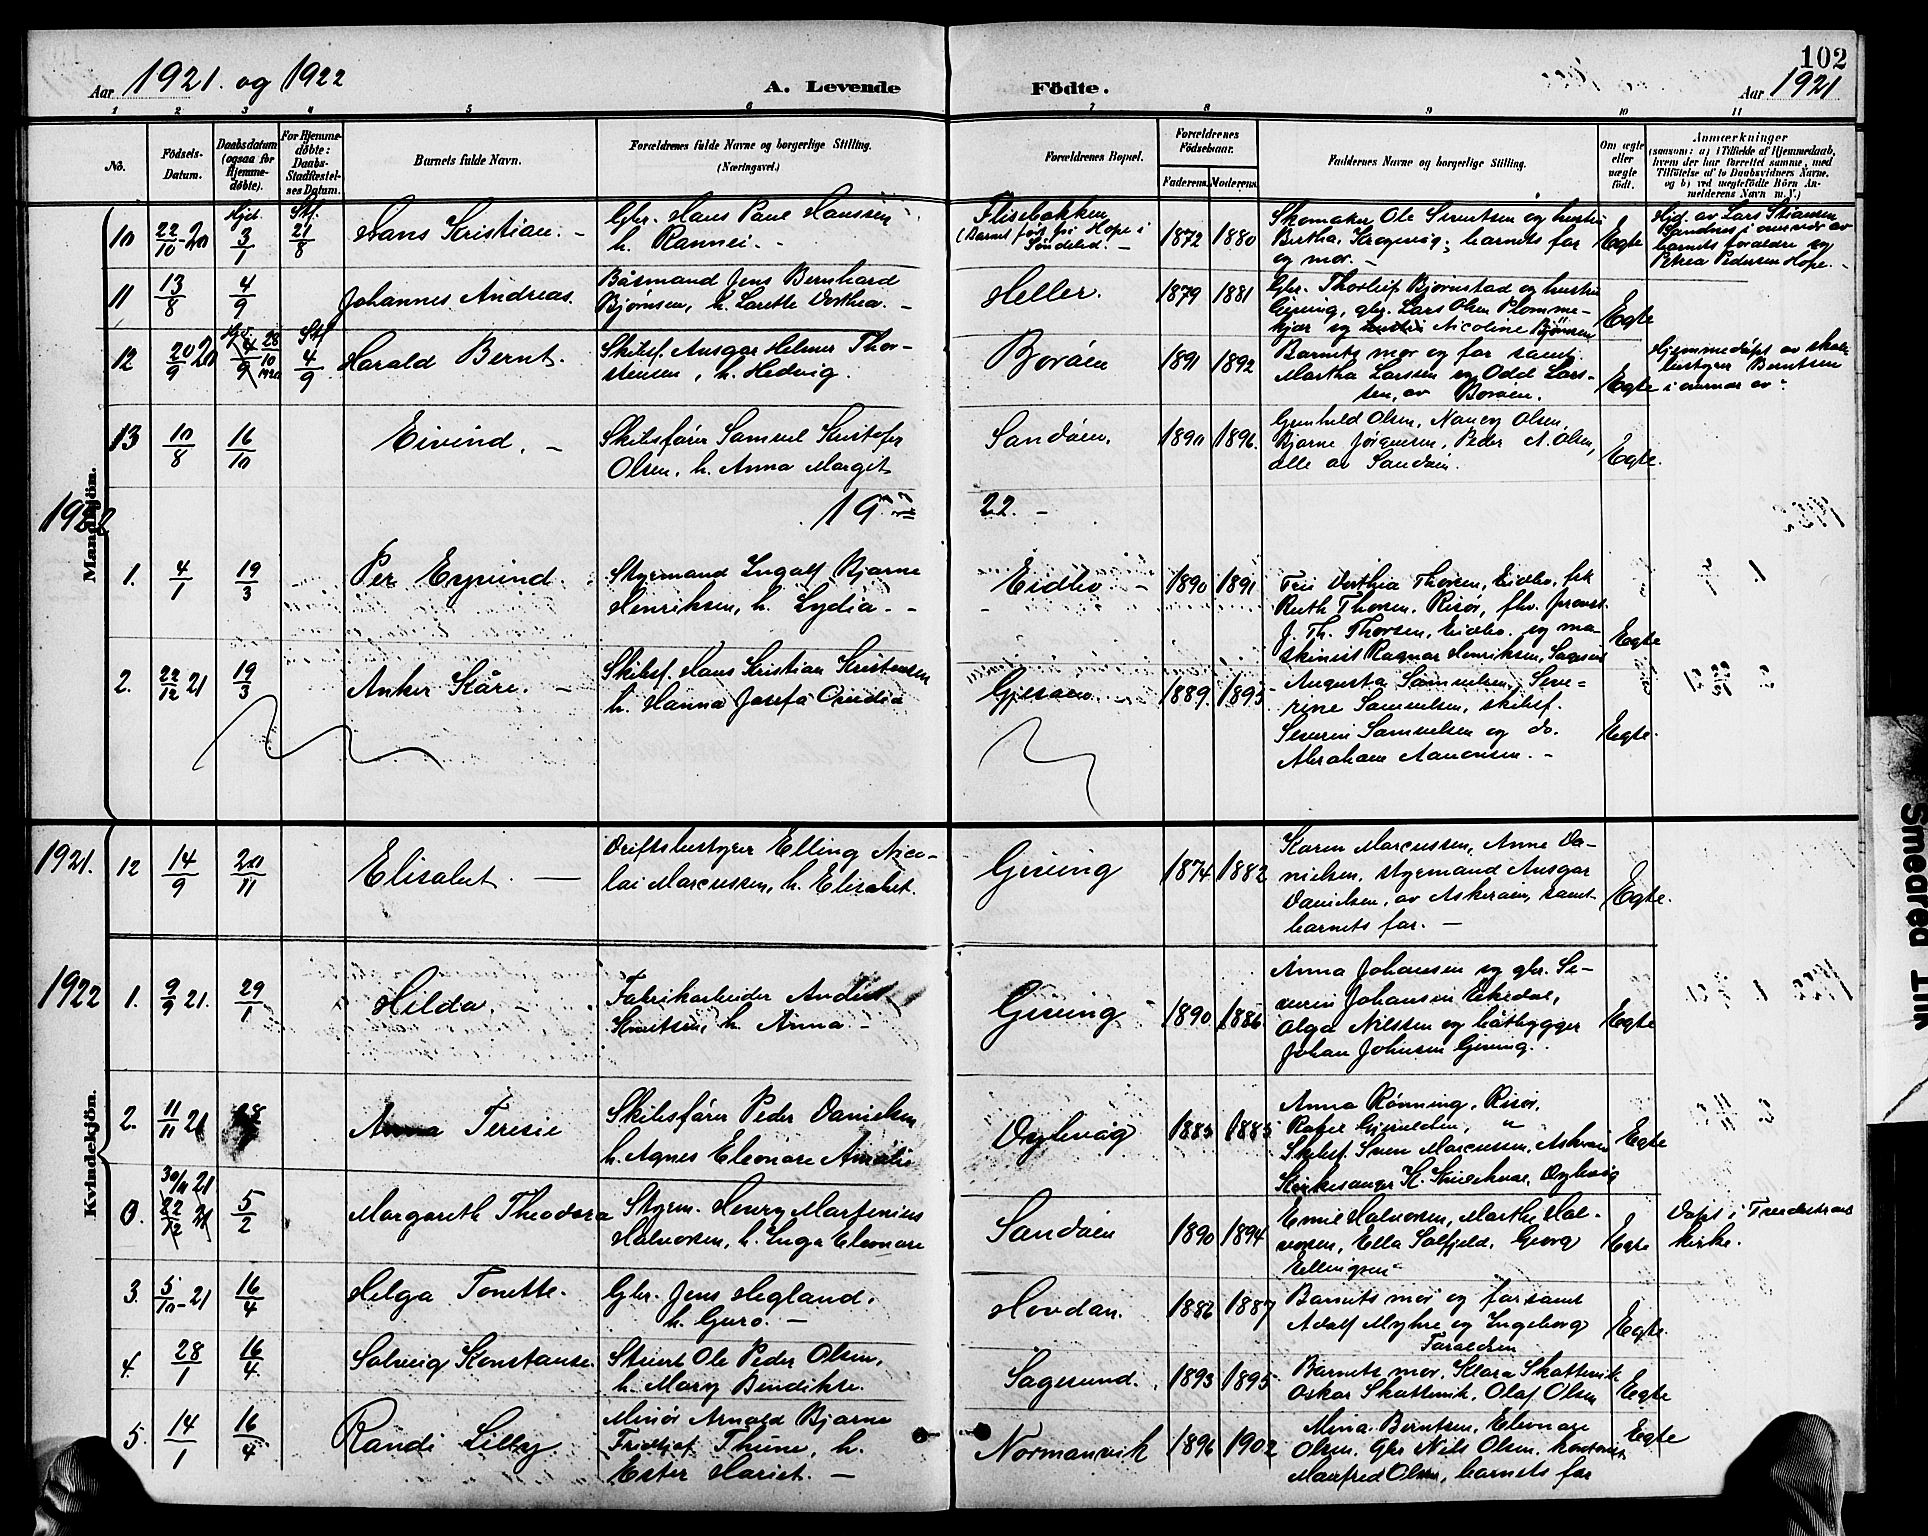 102
Aar 1921. og 1922 A. Levende Födte. Aar 1921
1 2 3 4 5 6 7 8 9 10 11
No. Födsels-Datum. Daabsdatum (ogsaa for Hjemmedöbte). For Hjemmedöbte: Daabs-Stadfestelses Datum. Barnets fulde Navn. Forældrenes fulde Navne og borgerlige Stilling. (Næringsvei.) Forældrenes Bopæl. Forældrenes Födselsaar. Faderens. Moderens. Faddernes Navne og borgerlige Stilling. Om ægte eller uægte födt. Anmærkninger
(saasom: a) i Tilfælde af Hjemmedaab, hvem der har forrettet samme, med Tilföielse af to Daabsvidners Navne, og b) ved uægtefödte Börn Anmelderens Navn m. V.)
Mandkjön.
10 22/10-20 Hjd. 3/1 Stf. 21/8 Hans Kristian. - Gbr. Hans Paul Hanssen
h. Rannei. - Flisebakken
(Barnet föd på Hope i
Söndeled. - 1872 1880 Skomaker Ole Sivertsen og hustru
Bertha, Krogevig, barnets far
og mor. - Egte Hjd. av Lars Stiansen
Sandnes i overvær av
barnets foraldre og
Petrea Pedersen Hope. -
11 13/8 4/9 Johannes Andreas. Båsmand Jens Bernhard
Bjørnsen, h. Larette Dorthea. - Heller. 1879 1881 Gbr. Thorleif Bjørnstad og hustru
Gjeving, gbr. Lars Olsen Plomme-
kjær og hustru Nicoline Bjørnsen Egte
12 20/9 20 4/9 28/10 1920 Stf 4/9 Harald Bernt. Skibsf. Ansgar Helmer Thor-
stensen, h. Hedvig. Borøen 1891 1892 Barnets mor og far samt
Martha Larssen og Odd Lars-
sen, av Borøen. Egte Hjemmedøpt av skole
bestyrer Berntsen
i overvær av:
13 10/8 16/10 Eivind. - Skibsfører Samuel Kristofer
Olsen, h. Anna Margit Sandøen. 1890 1896. Gunhild Olsen, Nancy Olsen,
Bjarne Jørgensen, Peder A. Olsen,
alle av Sandøen. Egte.
1922 19 22. -
1. 4/1 19/3 Per Eyvind. Styrmand Ingolf Bjarne
Henriksen, h. Lydia. - Eidbo - 1890 1891 Fru Dorthea Thorsen, Eidbo, frk
Ruth Thorsen, Risør, fhv. provst
J. Th. Thorsen, Eidbo. og ma-
skinist Ragnar Henriksen, Sagesund Egte
2. 22/12 21 19/3 Anker Kåre. - Skibsf. Hans Kristian Kristensen
h. Hanna Josefa Ovidia Gjesøen 1889. 1893 Augusta Samuelsen, Seve-
rine Samuelsen, skibsf.
Severin Samuelsen og do.
Abraham Aanonsen. - Egte.
Kvindekjön.
1921. 12 14/9 20/11 Elisabet. - Driftsbestyrer Elling Nico-
lai Marcussen, h. Elisabet. Gjeving 1874 1882 Karen Marcussen, Anne Da-
nielsen, styrmand Ansgar
Danielsen, av Askerøen, samt
barnets far. - Egte.
1922 1. 9/9 21. 29/1 Hilda. - Fabrikarbeider Anders
Knutsen, h. Anna - Gjeving 1890 1886. Anna Johansen og gbr. Se-
verin Johansen Ekedal,
Olga Nilssen og båtbygger
Johan Johnsen Gjeving. Egte
2. 11/11 21 Anna Teresie Skibsfører Peder Danielsen
h. Agnes Eleonore Amalie Dybvåg 1883 1885 Anna Rønning, Risør,
Skibsf. Sven Marcussen, Askerøen
Kirkesanger K. Dybvåg Egte
0. 30/11 21 22/12 21 5/2 Margareth Theodora Styrm. Henry Martinius
Halvorsen, h. Inga Eleonore Sandøen 1890 1894 Emil Halvorsen, Marthe Hal-
vorsen, Ella Solfjeld, Georg
Ellingsen Egte Døpt i Fredrikstads
kirke.
3. 5/10-21 16/4 Helga Tonette. Gbr. Jens Hegland,
h. Guro. - Hovdan. 1886 1887 Barnets mor og far samt
Adolf Myhre og Ingeborg
Taraldsen Egte.
4. 28/1 16/4 Solveig Konstanse. Stuert Ole Peder Olsen,
h. Mary Bendikse. Sagesund. 1893 1895 Barnets mor, Klara Skattevik
Oskar Skattevik, Olaf Olsen Egte
5. 14/1 16/4 Randi Lilly Arnold Bjarne
Fridtjof Thune, h.
Ester Hariet. - Normanvik 1896 1902 Mina Berntsen, Eleonore
Olsen, Gbr Nils Olsen,
Manfred Olsen, barnets far Egte
Smeared Ink